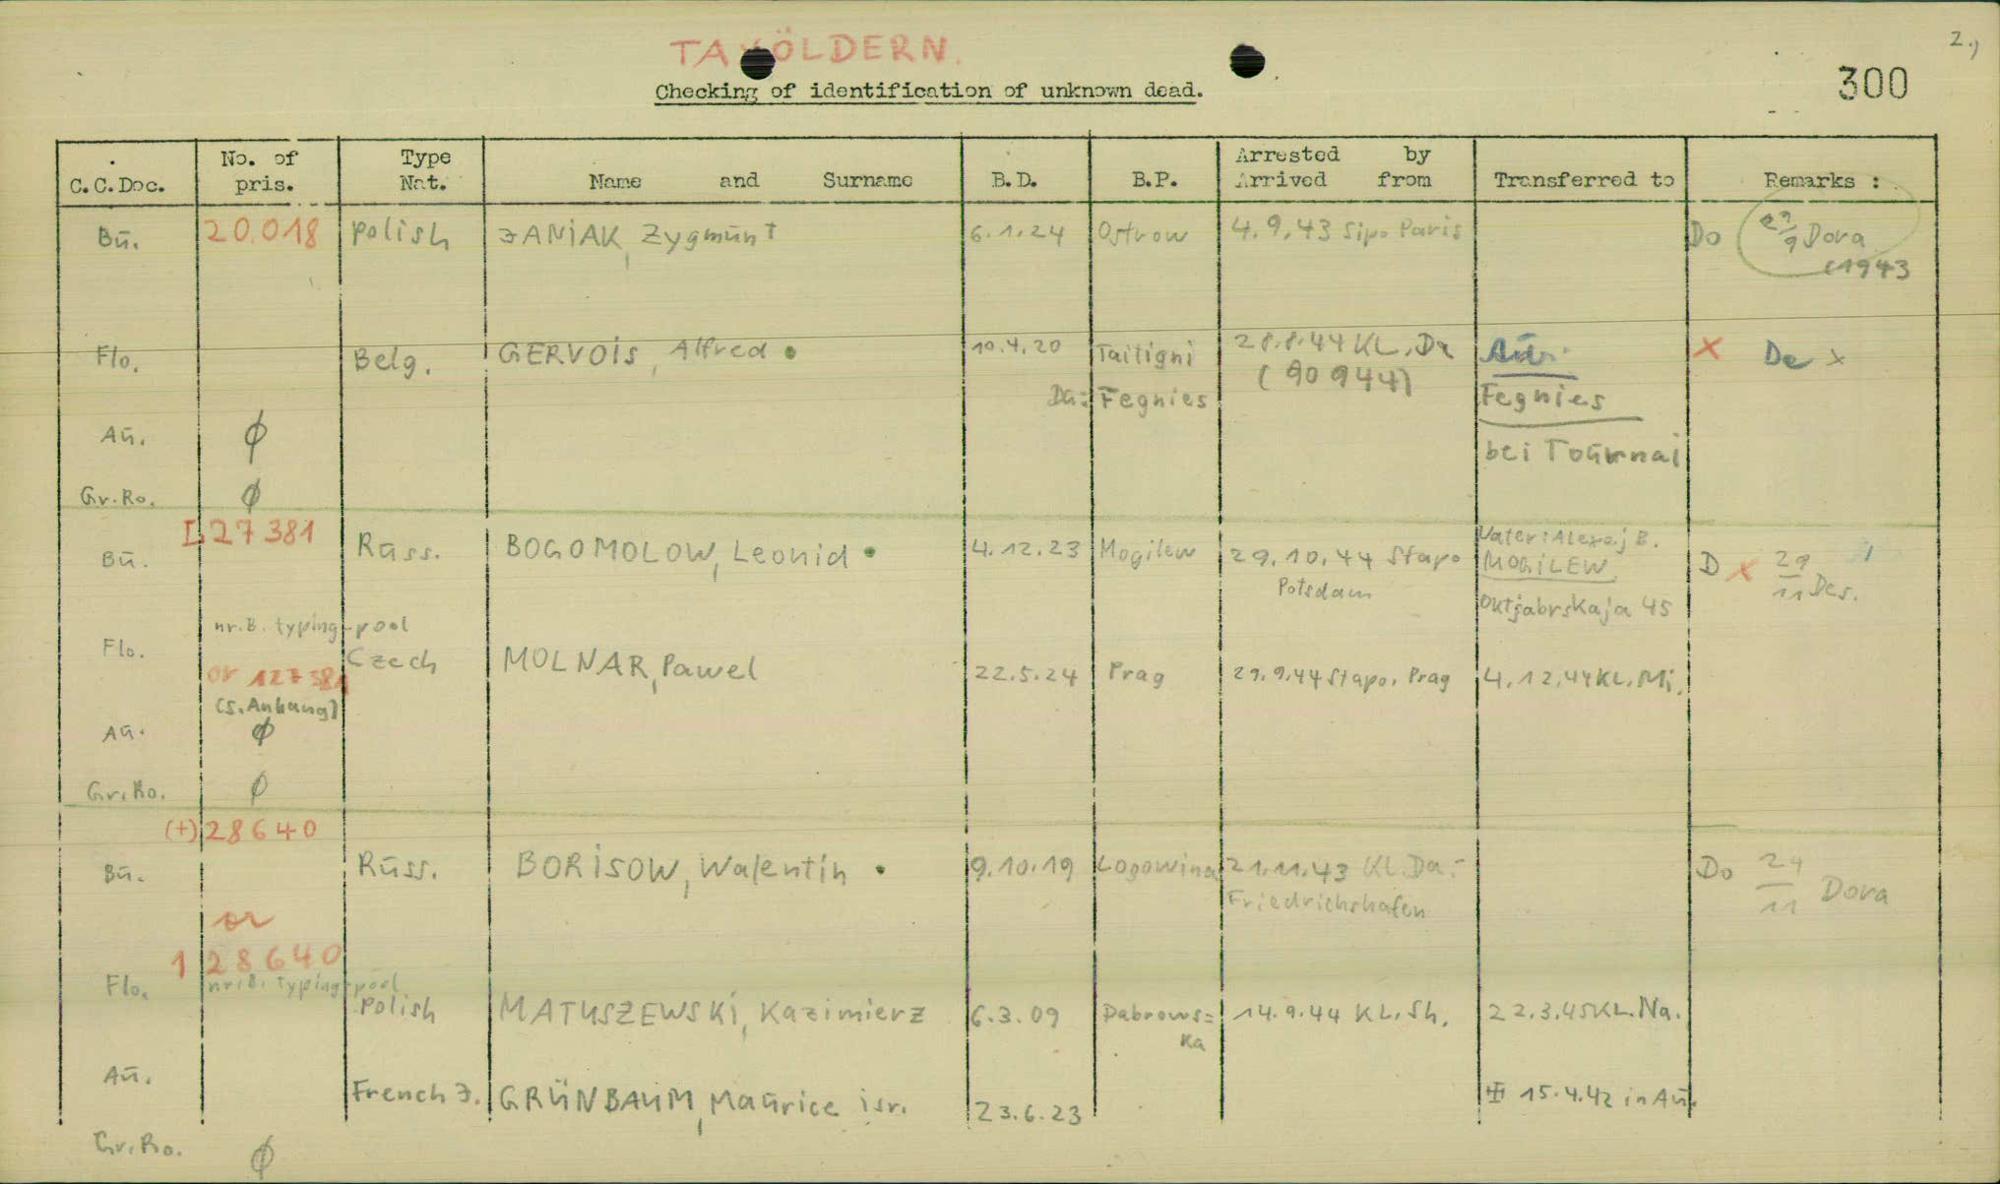 TAXÖLDERN.
2.)
Checking of identification of unknown dead.
300
C.C.Doc. No. of pris. Type Nat. Name and Surname B.D. B.P. Arrested by Arrived from Transferred to Remarks :
Bū. 20.018 Polish JANIAK, Zygmūnt 6.1.24 Ostrow 4.9.43 Sipo Paris Do 29/9 Dora
(1943
Flo. Belg. GERVOIS, Alfred • 10.4.20 Taitigni 28.8.44 KL. Da X De x
(90944)
Da: Fegnies Fegnies
Aū. ∅ bei Toūrnai
Gr.Ro. ∅
27381
Bū. Rūss. BOGOMOLOW, Leonid • 4.12.23 Mogilew 29.10.44 Stapo Vater: Alexej B. D X 29/11 Des.
Potsdam MOGiLEW
Oktjabrskaja 45
nr.B. typing-pool
Flo. Czech MOLNAR, Pawel 22.5.24 Prag 29.9.44 Stapo, Prag 4.12.44 KL. Mi.
or 127381
(s. Anhang)
Aū. ∅
Gr.Ro. ∅
(+) 28640
Bū. Rūss. BORISOW, Walentin • 9.10.19 Logowina 21.11.43 KL Da.- Do 24/11 Dora
Friedrichshafen
or
128640
Flo. nr.B. typing-pool
Polish MATUSZEWSKI, Kazimierz 6.3.09 Dabrows= 14.9.44 KL. Sh. 22.3.45 KL. Na.
ka
Aū. French J. GRÜNBAUM, Maūrice isr. 23.6.23 15.4.42 in Aū.
Gr.Ro. ∅